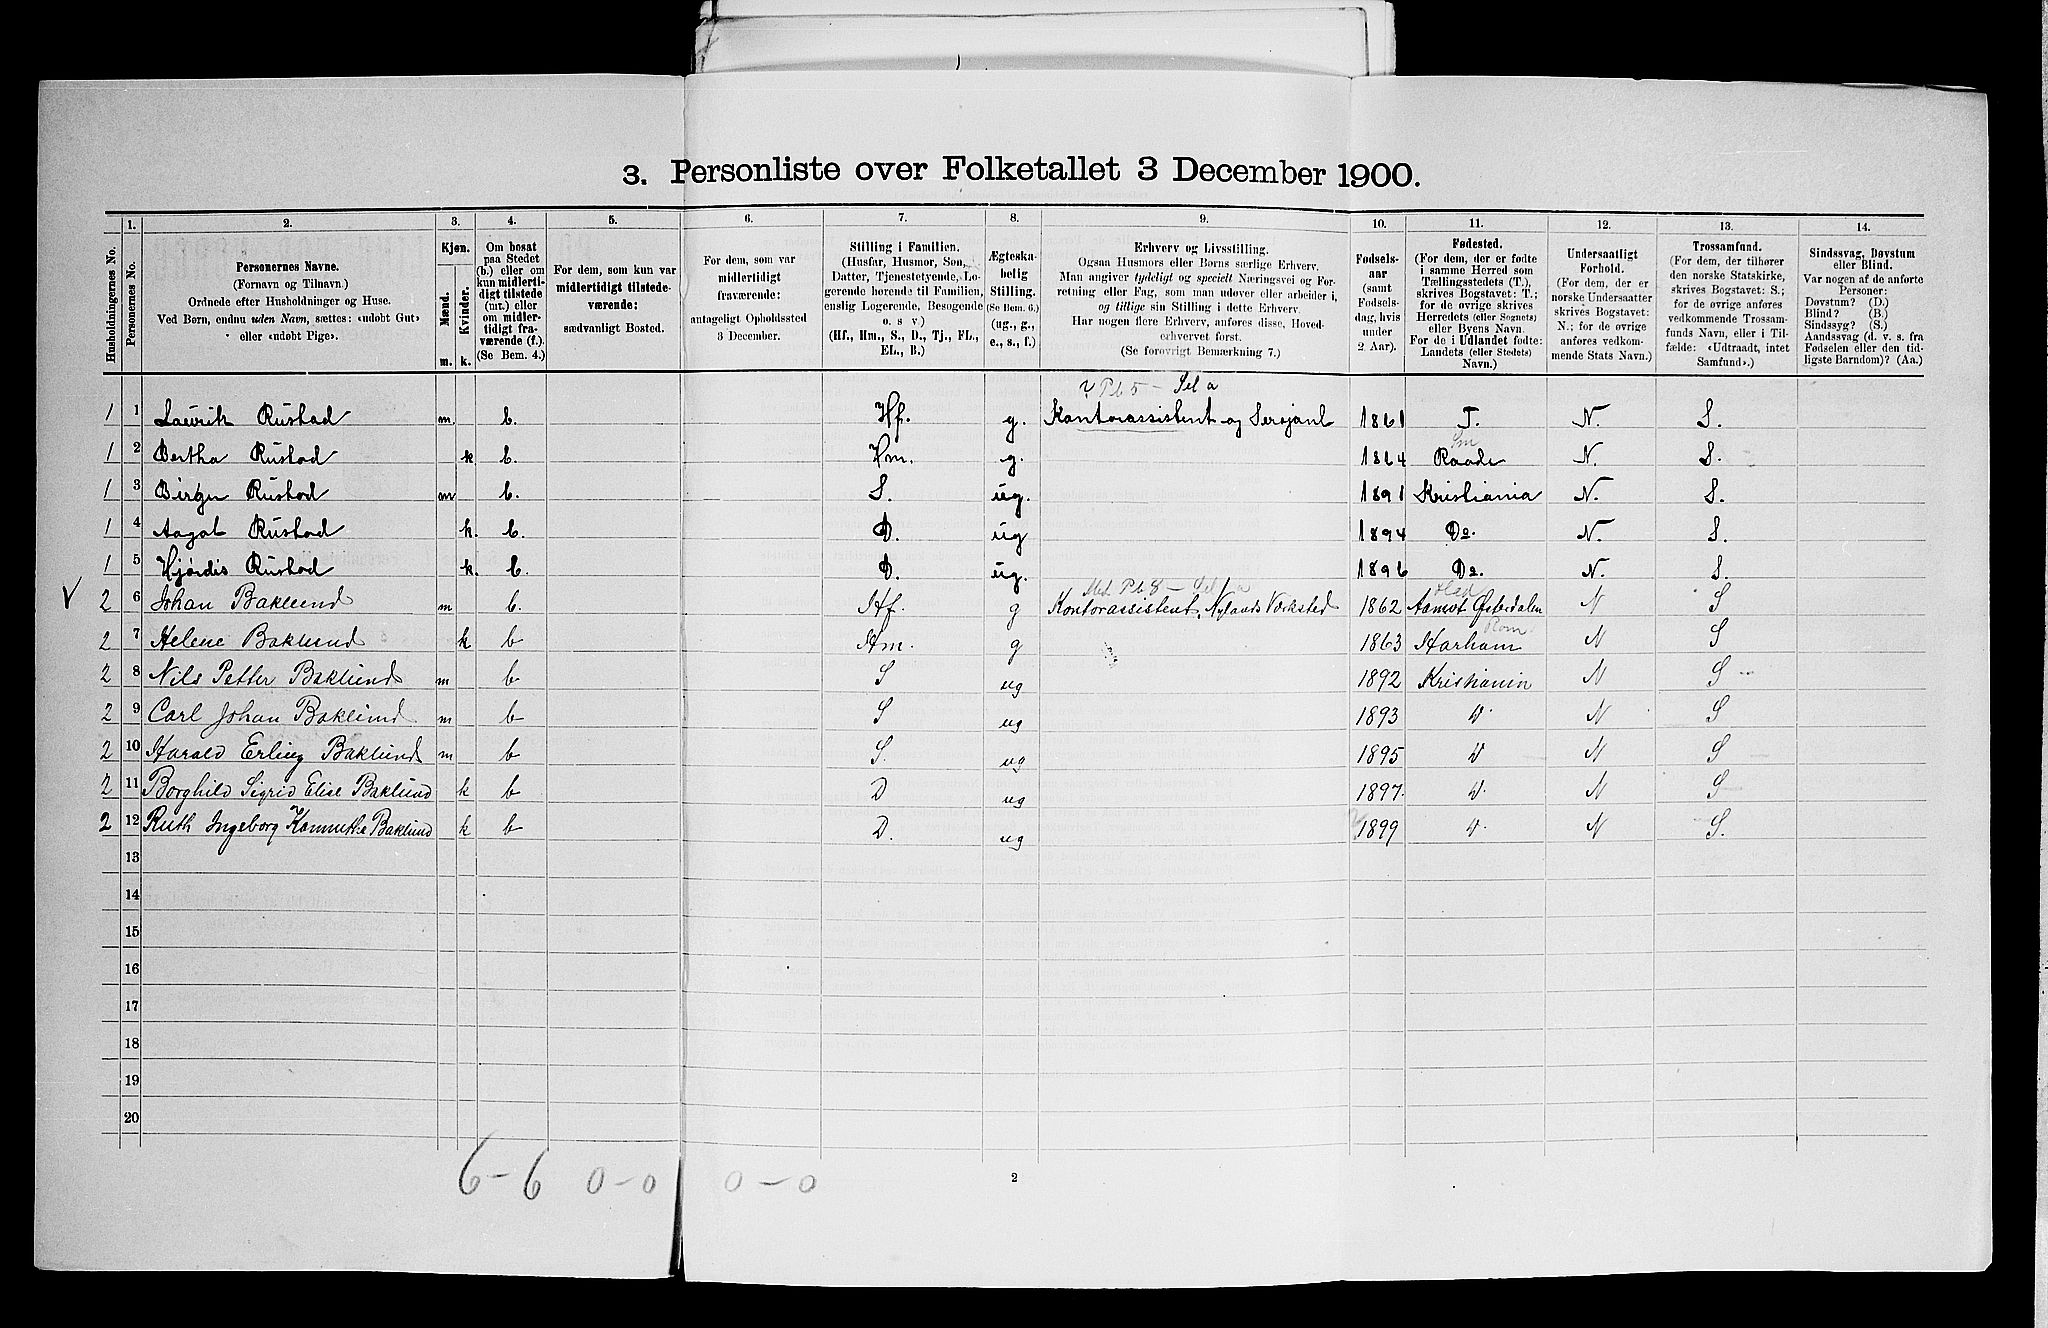 3. Personliste over Folketallet 3 December 1900.
1. 2. 3. 4. 5. 6. 7. 8. 9. 10. 11. 12. 13. 14.
Husholdningernes No.
Personernes No.
Personernes Navne.
(Fornavn og Tilnavn.)
Ordnede efter Husholdninger og Huse.
Ved Børn, endnu uden Navn, sættes: «udøbt Gut»
eller «udøbt Pige».
Kjøn.
Mænd.
Kvinder.
m. k.
Om bosat
paa Stedet
(b.) eller om
kun midlerti-
digt tilstede
(mt.) eller
om midler-
tidigt fra-
værende (f.).
(Se Bem. 4.)
For dem, som kun var
midlertidigt tilstede-
værende:
sædvanligt Bosted.
For dem, som var
midlertidigt
fraværende:
antageligt Opholdssted
3 December.
Stilling i Familien.
(Husfar, Husmor, Søn,
Datter, Tjenestetyende, Lo-
gerende hørende til Familien,
enslig Logerende, Besøgende
o. s. v.)
(Hf., Hm., S., D., Tj., FL.,
EL., B.)
Ægteska-
belig
Stilling.
(Se Bem. 6.)
(ug., g.,
e., s., f.)
Erhverv og Livsstilling.
Ogsaa Husmors eller Børns særlige Erhverv.
Man angiver tydeligt og specielt Næringsvei og For-
retning eller Fag, som man udøver eller arbeider i,
og tillige sin Stilling i dette Erhverv.
Har nogen flere Erhverv, anføres disse, Hoved-
erhvervet først.
(Se forøvrigt Bemærkning 7.)
Fødsels-
aar
(samt
Fødsels-
dag, hvis
under
2 Aar).
Fødested.
(For dem, der er fødte
i samme Herred som
Tællingsstedets (T.),
skrives Bogstavet: T.;
for de øvrige skrives
Herredets (eller Sognets)
eller Byens Navn.
For de i Udlandet fødte:
Landets (eller Stedets)
Navn.)
Undersaatligt
Forhold.
(For dem, der er
norske Undersaatter
skrives Bogstavet:
N.; for de øvrige
anføres vedkom-
mende Stats Navn.)
Trossamfund.
(For dem, der tilhører
den norske Statskirke,
skrives Bogstavet: S.;
for de øvrige anføres
vedkommende Trossam-
funds Navn, eller i Til-
fælde: «Udtraadt, intet
Samfund».)
Sindssvag, Døvstum
eller Blind.
Var nogen af de anførte
Personer:
Døvstum? (D.)
Blind? (B.)
Sindssyg? (S.)
Aandssvag (d. v. s. fra
Fødselen eller den tid-
ligste Barndom)? (Aa.)
1 1 Laurik Rustad m. b. Hf. g. Kontorassistent og Sersjant 1861 T. N. S.
1 2 Bertha Rustad k b. Hm. g. 1864 Raade N. S.
1 3 Birger Rustad m b. S. ug. 1891 Kristiania N. S.
1 4 Aagot Rustad k. b. D. ug 1894 Do. N. S.
1 5 Hjørdis Rustad k. b. D. ug. 1896 Do. N. S.
V 2 6 Johan Baklund m b. Hf. g Kontorassistent, Nylands Værksted 1862 Aamot Østerdalen N S
2 7 Helene Baklund k b Hm. g 1863 Harham N S
2 8 Nils Petter Baklund m b S ug 1892 Kristiania N S
2 9 Carl Johan Baklund m b S ug 1893 D. N S
2 10 Harald Erling Baklund m b S. ug 1895 D N S
2 11 Borghild Sigrid Elise Baklund k b D ug 1897. D. N S
2 12 Ruth Ingeborg Baklund k b D. ug 1899 D. N S.
13
14
15
16
17
18
19
20
6-6 0-0 0-0
2